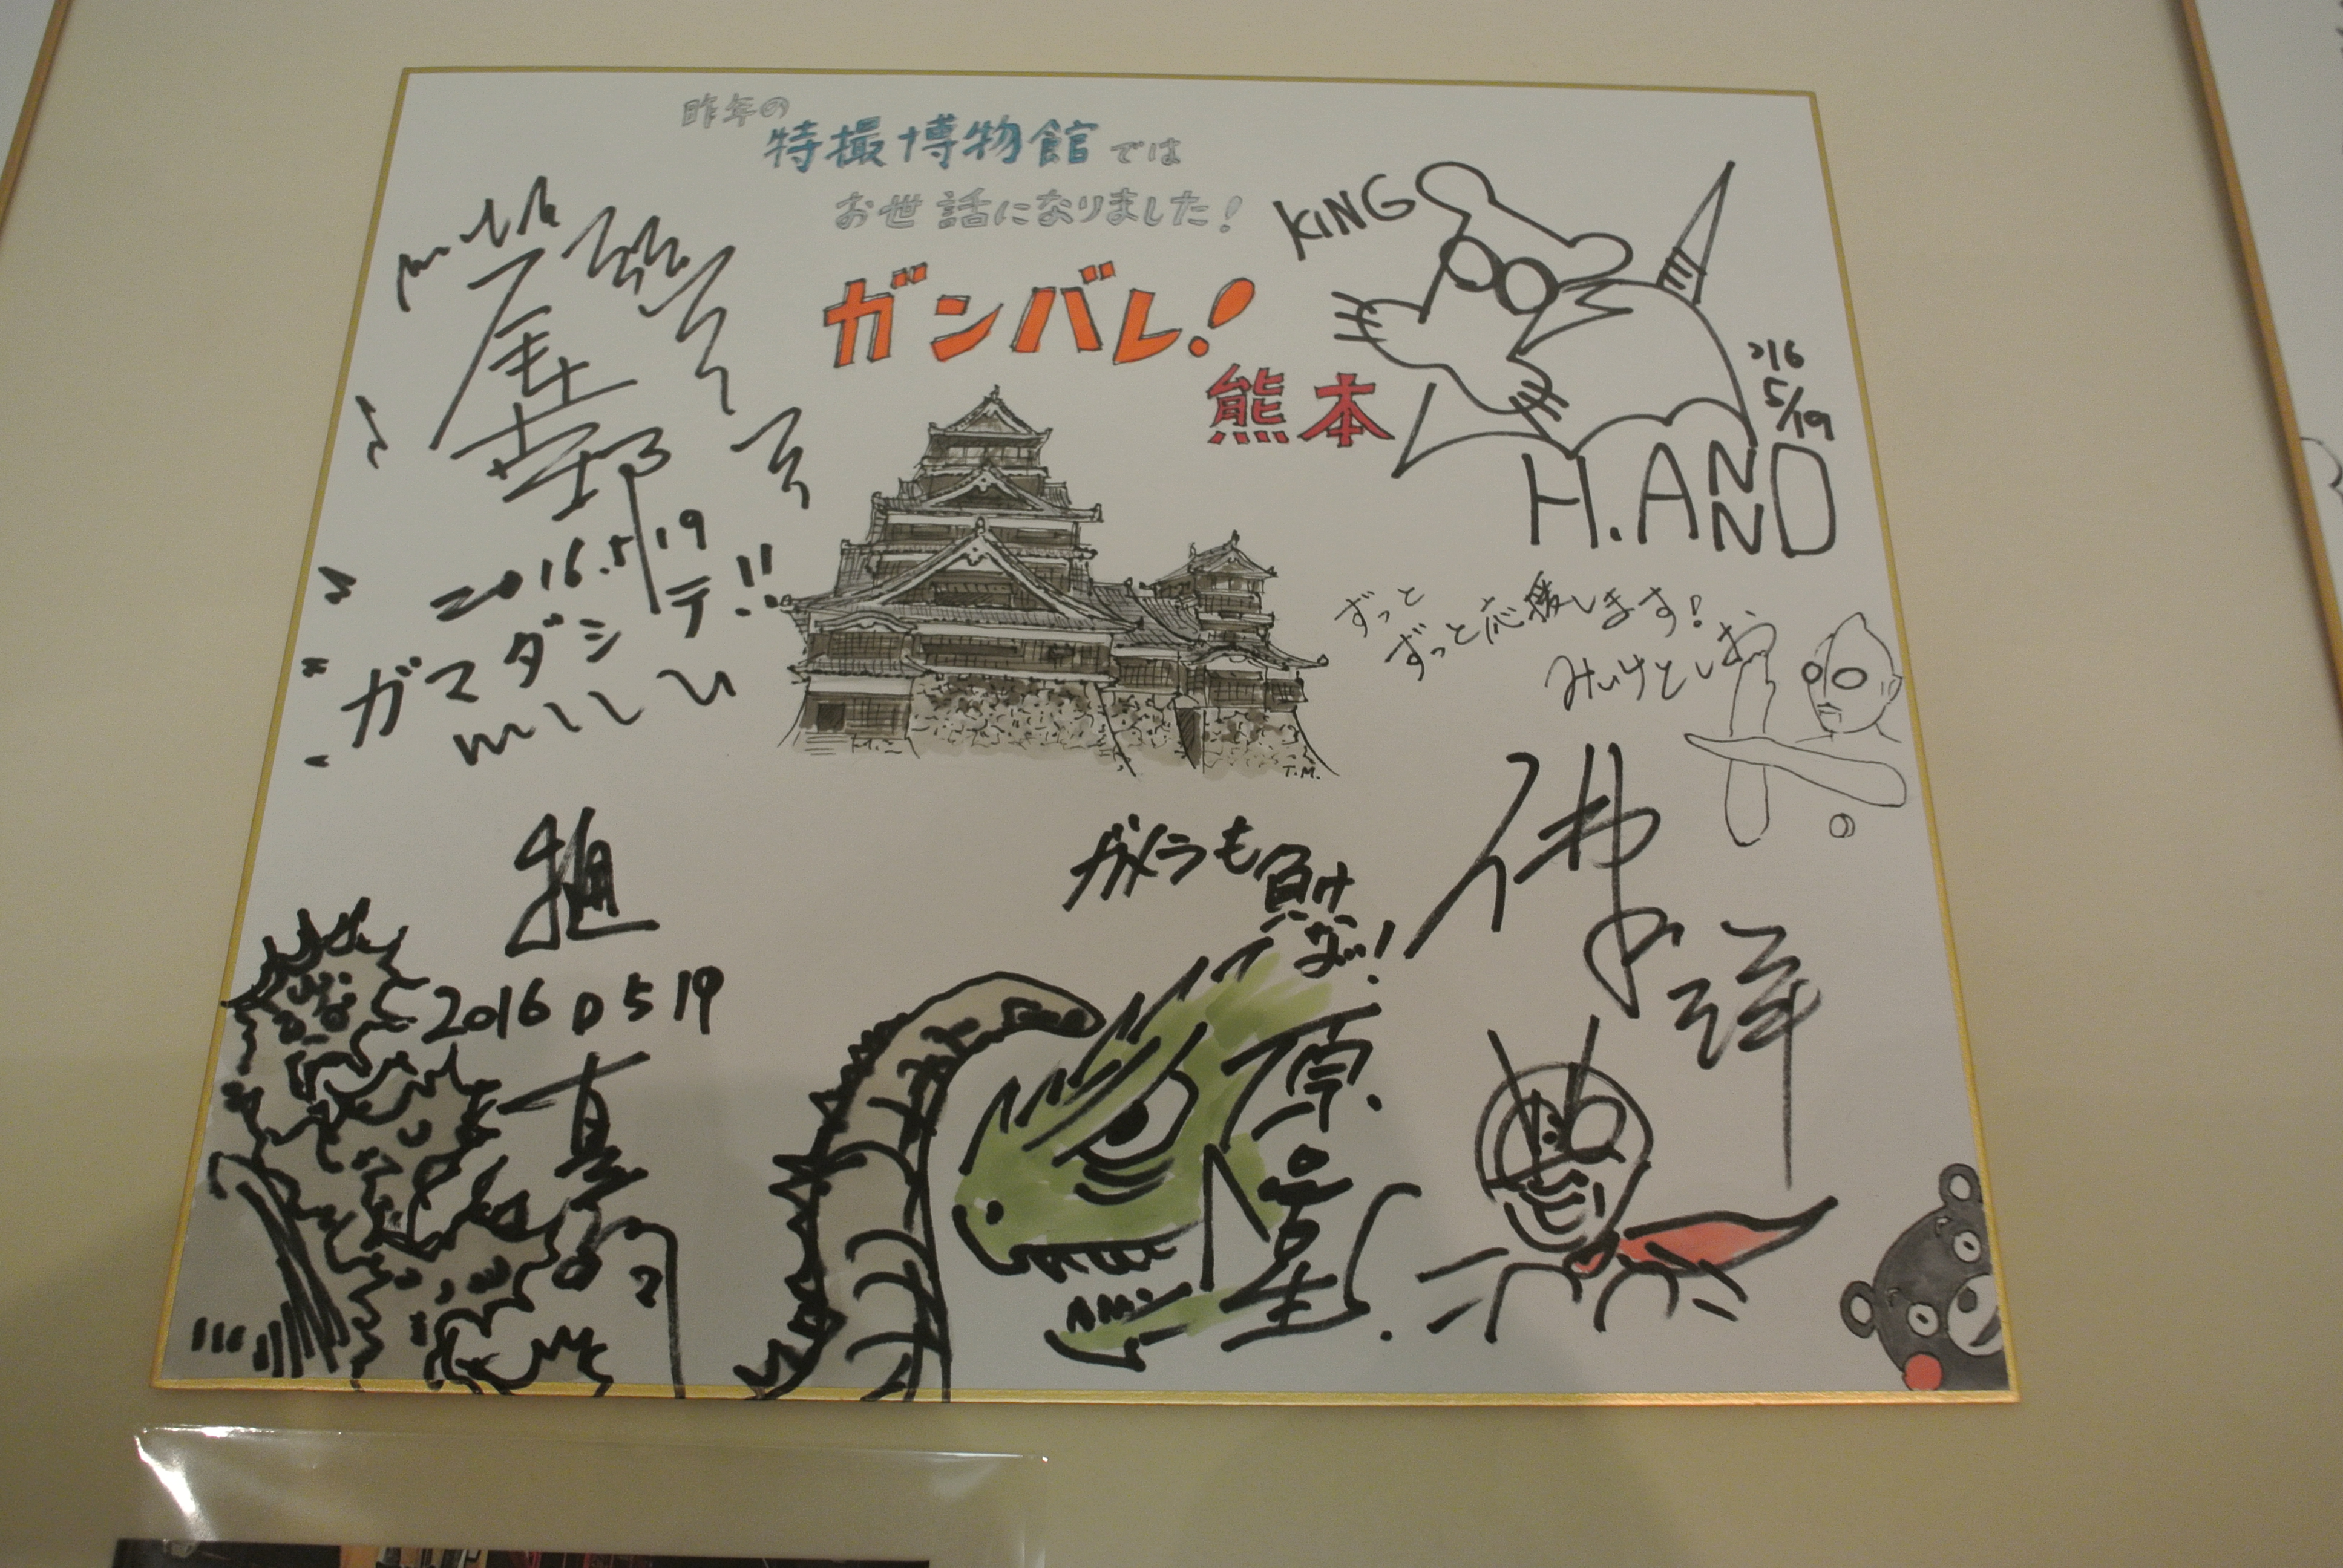 昨年の
特撮博物館では
お世話になりました!
ガンバレ!
熊本
KING
'16
5/19
H.ANND
2016.5.19
ガマダシテ!!
ずっと
ずっと応援します!
みいけとしお
T.M.
樋
2016 05 19
真
ガメラも負け
ない!
原口
智生.